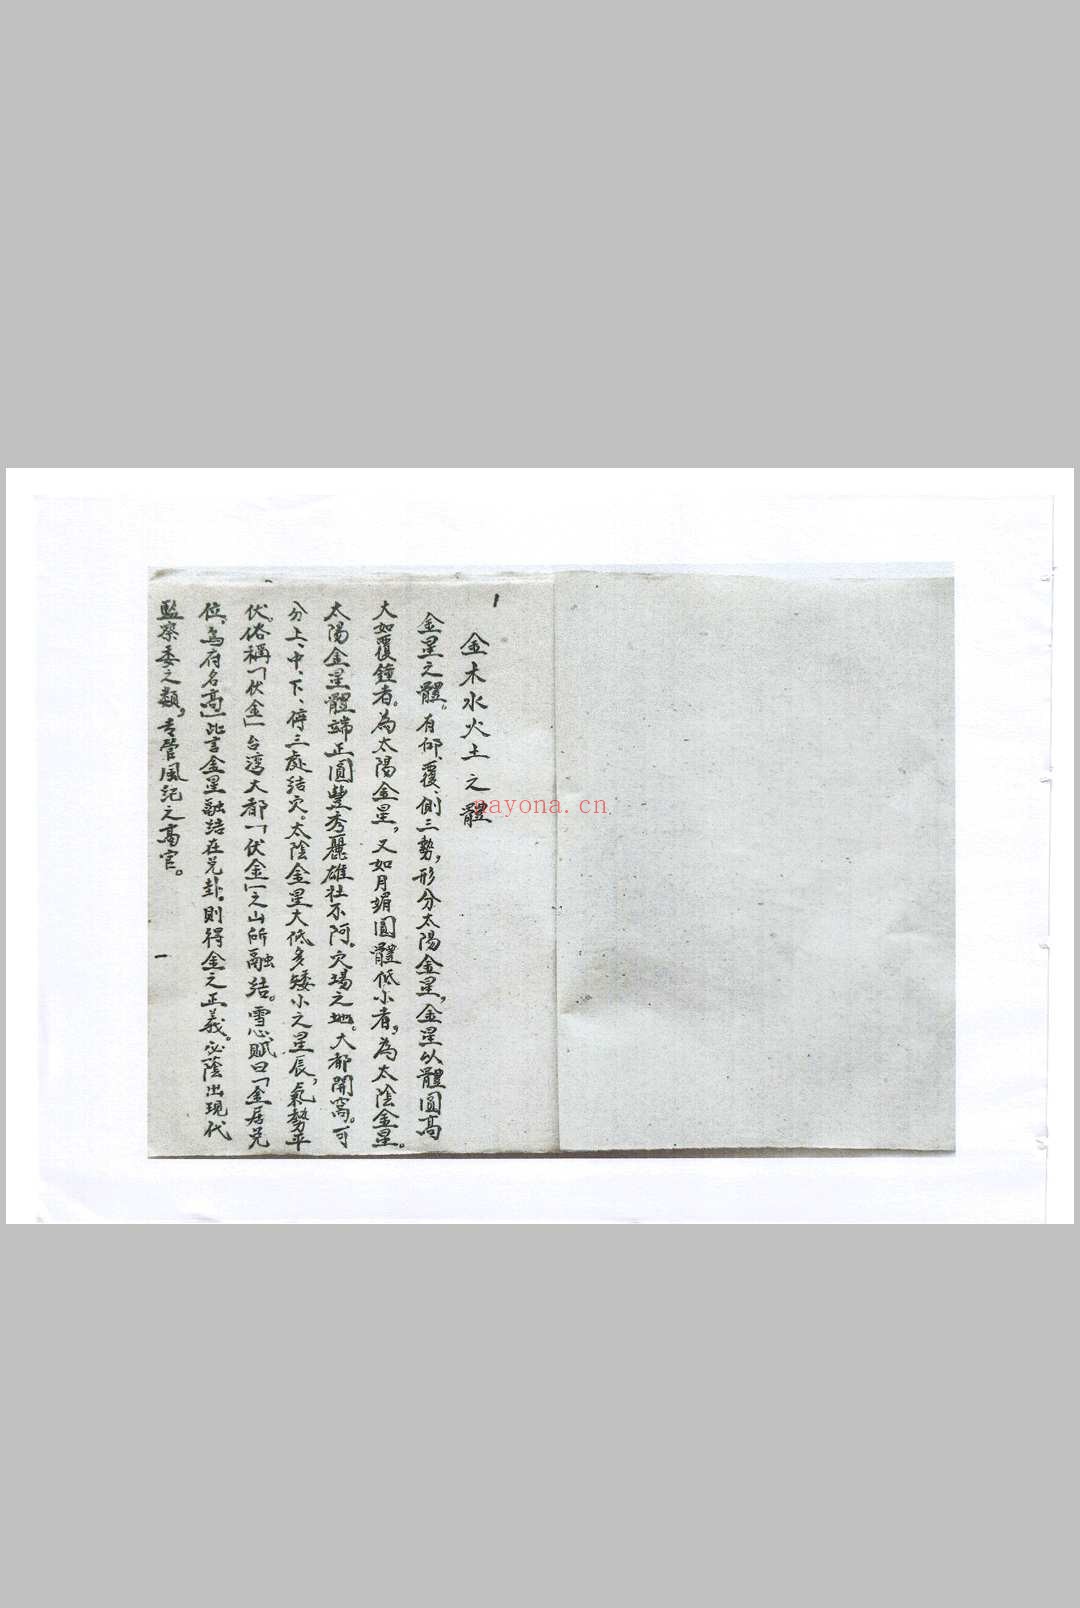 金木水火土之體
金星之體。有仰、覆、側三勢，形分太陽金星，金星以體圓高
大如覆鐘者。為太陽金星，又如月媚圓體低小者，為太陰金星。
太陽金星體端正圓豐秀麗雄壯不阿。穴場之地。大都開窩。可
分上、中、下、停三處結穴。太陰金星大低多矮小之星辰，氣勢平
伏。俗稱「伏金」台灣大都「伏金」之山所融結。雪心賦曰「金居兌
位，烏府名高」此言金星融結在兌卦。則得金之正義。必蔭出現代
監察委之類，专管風紀之高官。
一
nayona.cn